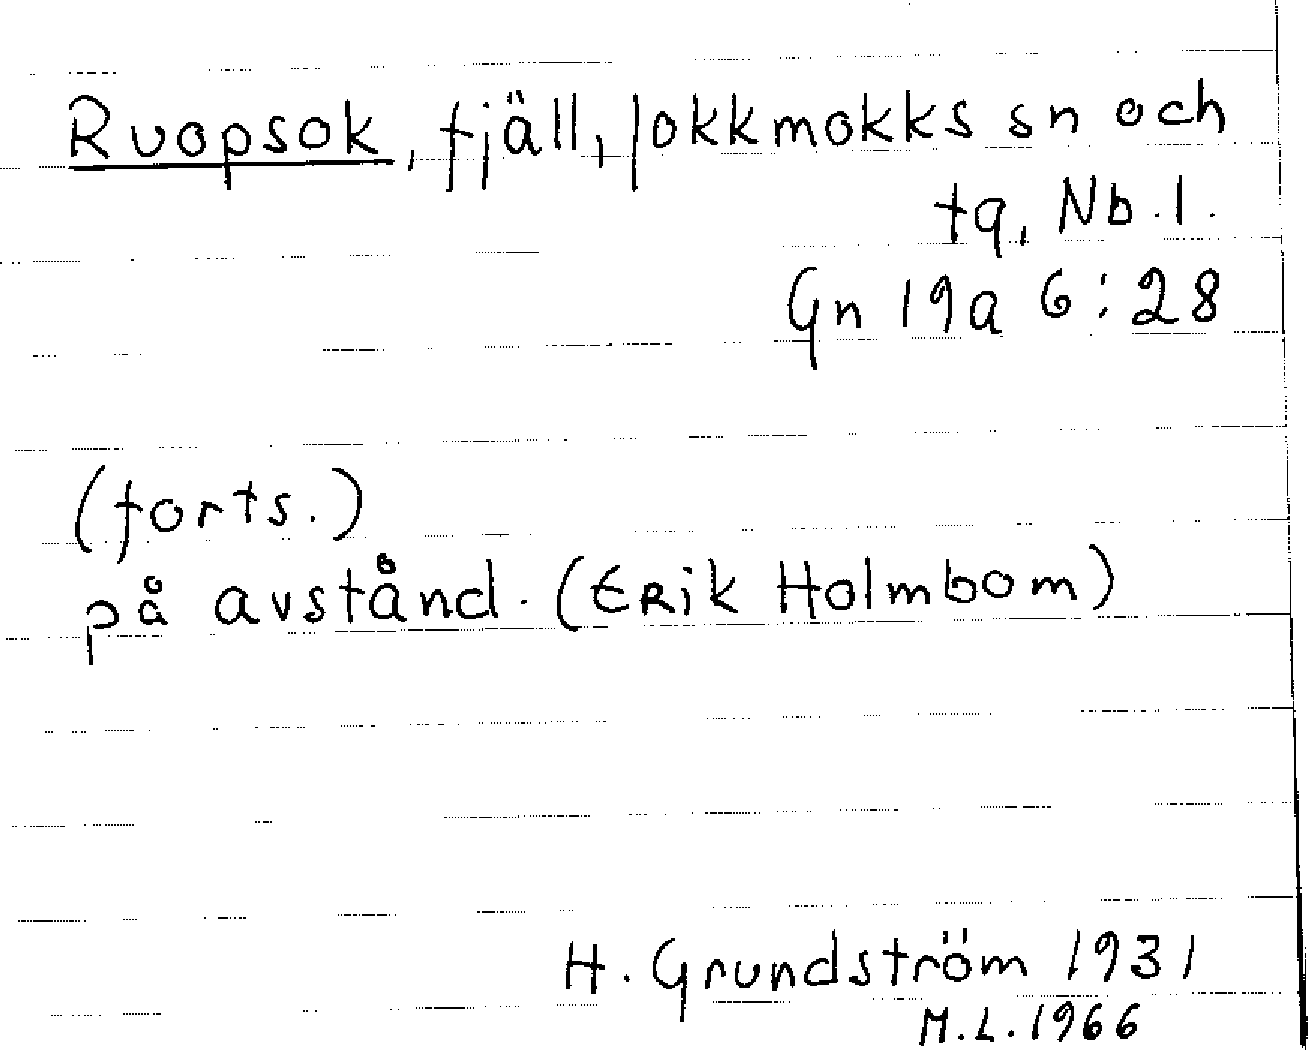 Ruopsok, fjäll, Jokkmokks sn och
tq, Nb.l.
Gn 19a 6:28
(forts.)
på avstånd. (Erik Holmbom)
H. Grundström 1931
M.L. 1966